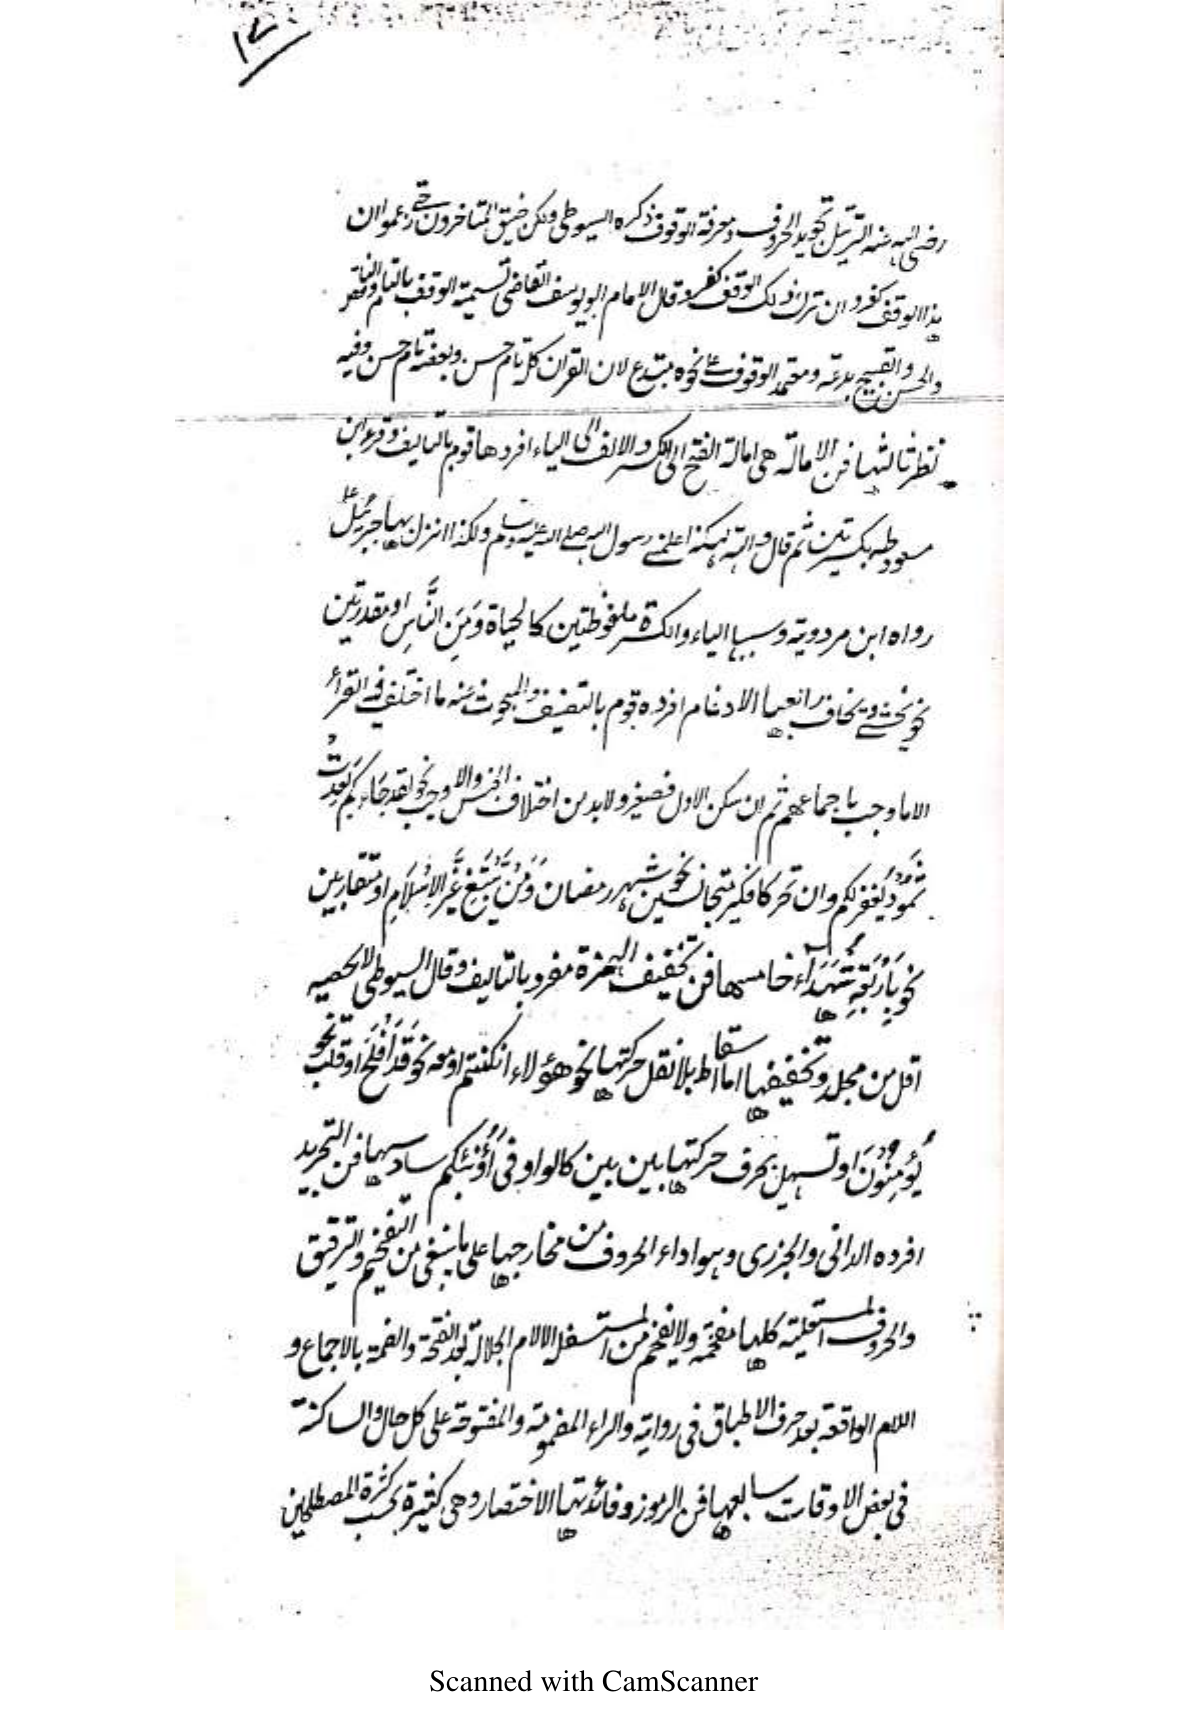 ١٧
رضى الله عنه الترتيل تجويد الحروف ومعرفة الوقوف ذكره السيوطى ولكن ضيق المتاخرون حتى زعموا ان
هذا الوقف كفر وان ترك ذلك الوقف كفر وقال الامام ابو يوسف القاضى تسمية الوقف بالتام والناقص
والحسن والقبيح بدعة ومعتمد الوقوف على نحوه مبتدع لان القران كل تام حسن وبعضه تام حسن وفيه
نظر ثالثها فن الامالة هى امالة الفتح الى الكسر والالف الى الياء افردها قوم بالتاليف وقرء ابن
مسعود طه بكسرتين ثم قال والله لهكذا علمنے رسول الله صلے الله عليه وسلم ولكذا انزل بها جبرئيل
رواه ابن مردوية وسببها الياء والكسرة ملفوظتين كالحياة وَمِنَ النَّاسِ او مقدرتين
نحو يخشے ويخاف رابعها الادغام افرده قوم بالتصنيف والمبحوث عنه ما اختلف فيه القراء
الا ما وجب باجماعهم ثم ان سكن الاول فصغير ولا بد من اختلاف الجنس والا وجب نحو لقد جَاءكم بَعِدَتْ
ثَمُودُ يغفر لكم وان تحركا فكبير متجانسين نحو شهر رمضان وَمَنْ يَّبْتَغِ غَيْرَ الْاِسْلَامِ او متقاربين
نحو بِاَرْبَعَةِ شُهَدَاءَ خامسها فن تخفيف الهمزة مفرد بالتاليف وقال السيوطى لا تحصيه
اقل من مجلد وتخفيفها اما اسقاط بلا نقل حركتها نحو هؤلاء ان كنتم او معه نحو قَدْ اَفْلَحَ او قلب نحو
يُؤْمِنُونَ او تسهيل بحرف حركتها بين بين كالواو فى أَؤُنَبِّئُكم سادسها فن التجويد
افرده الدانى والجزرى وهو اداء الحروف من مخارجها على ما ينبغى من التفخيم والترقيق
والحروف المستعلية كلها مفخمة ولا يفخم من المستفل الا لام الجلالة بعد الفتحة والضمة بالاجماع و
اللام الواقعة بعد حرف الاطباق فى رواية والراء المضمومة والمفتوحة على كل حال والساكنة
فى بعض الاوقات سابعها فن الرموز وفائدتها الاختصار وهى كثيرة بحسب كثرة المصطلحين
Scanned with CamScanner